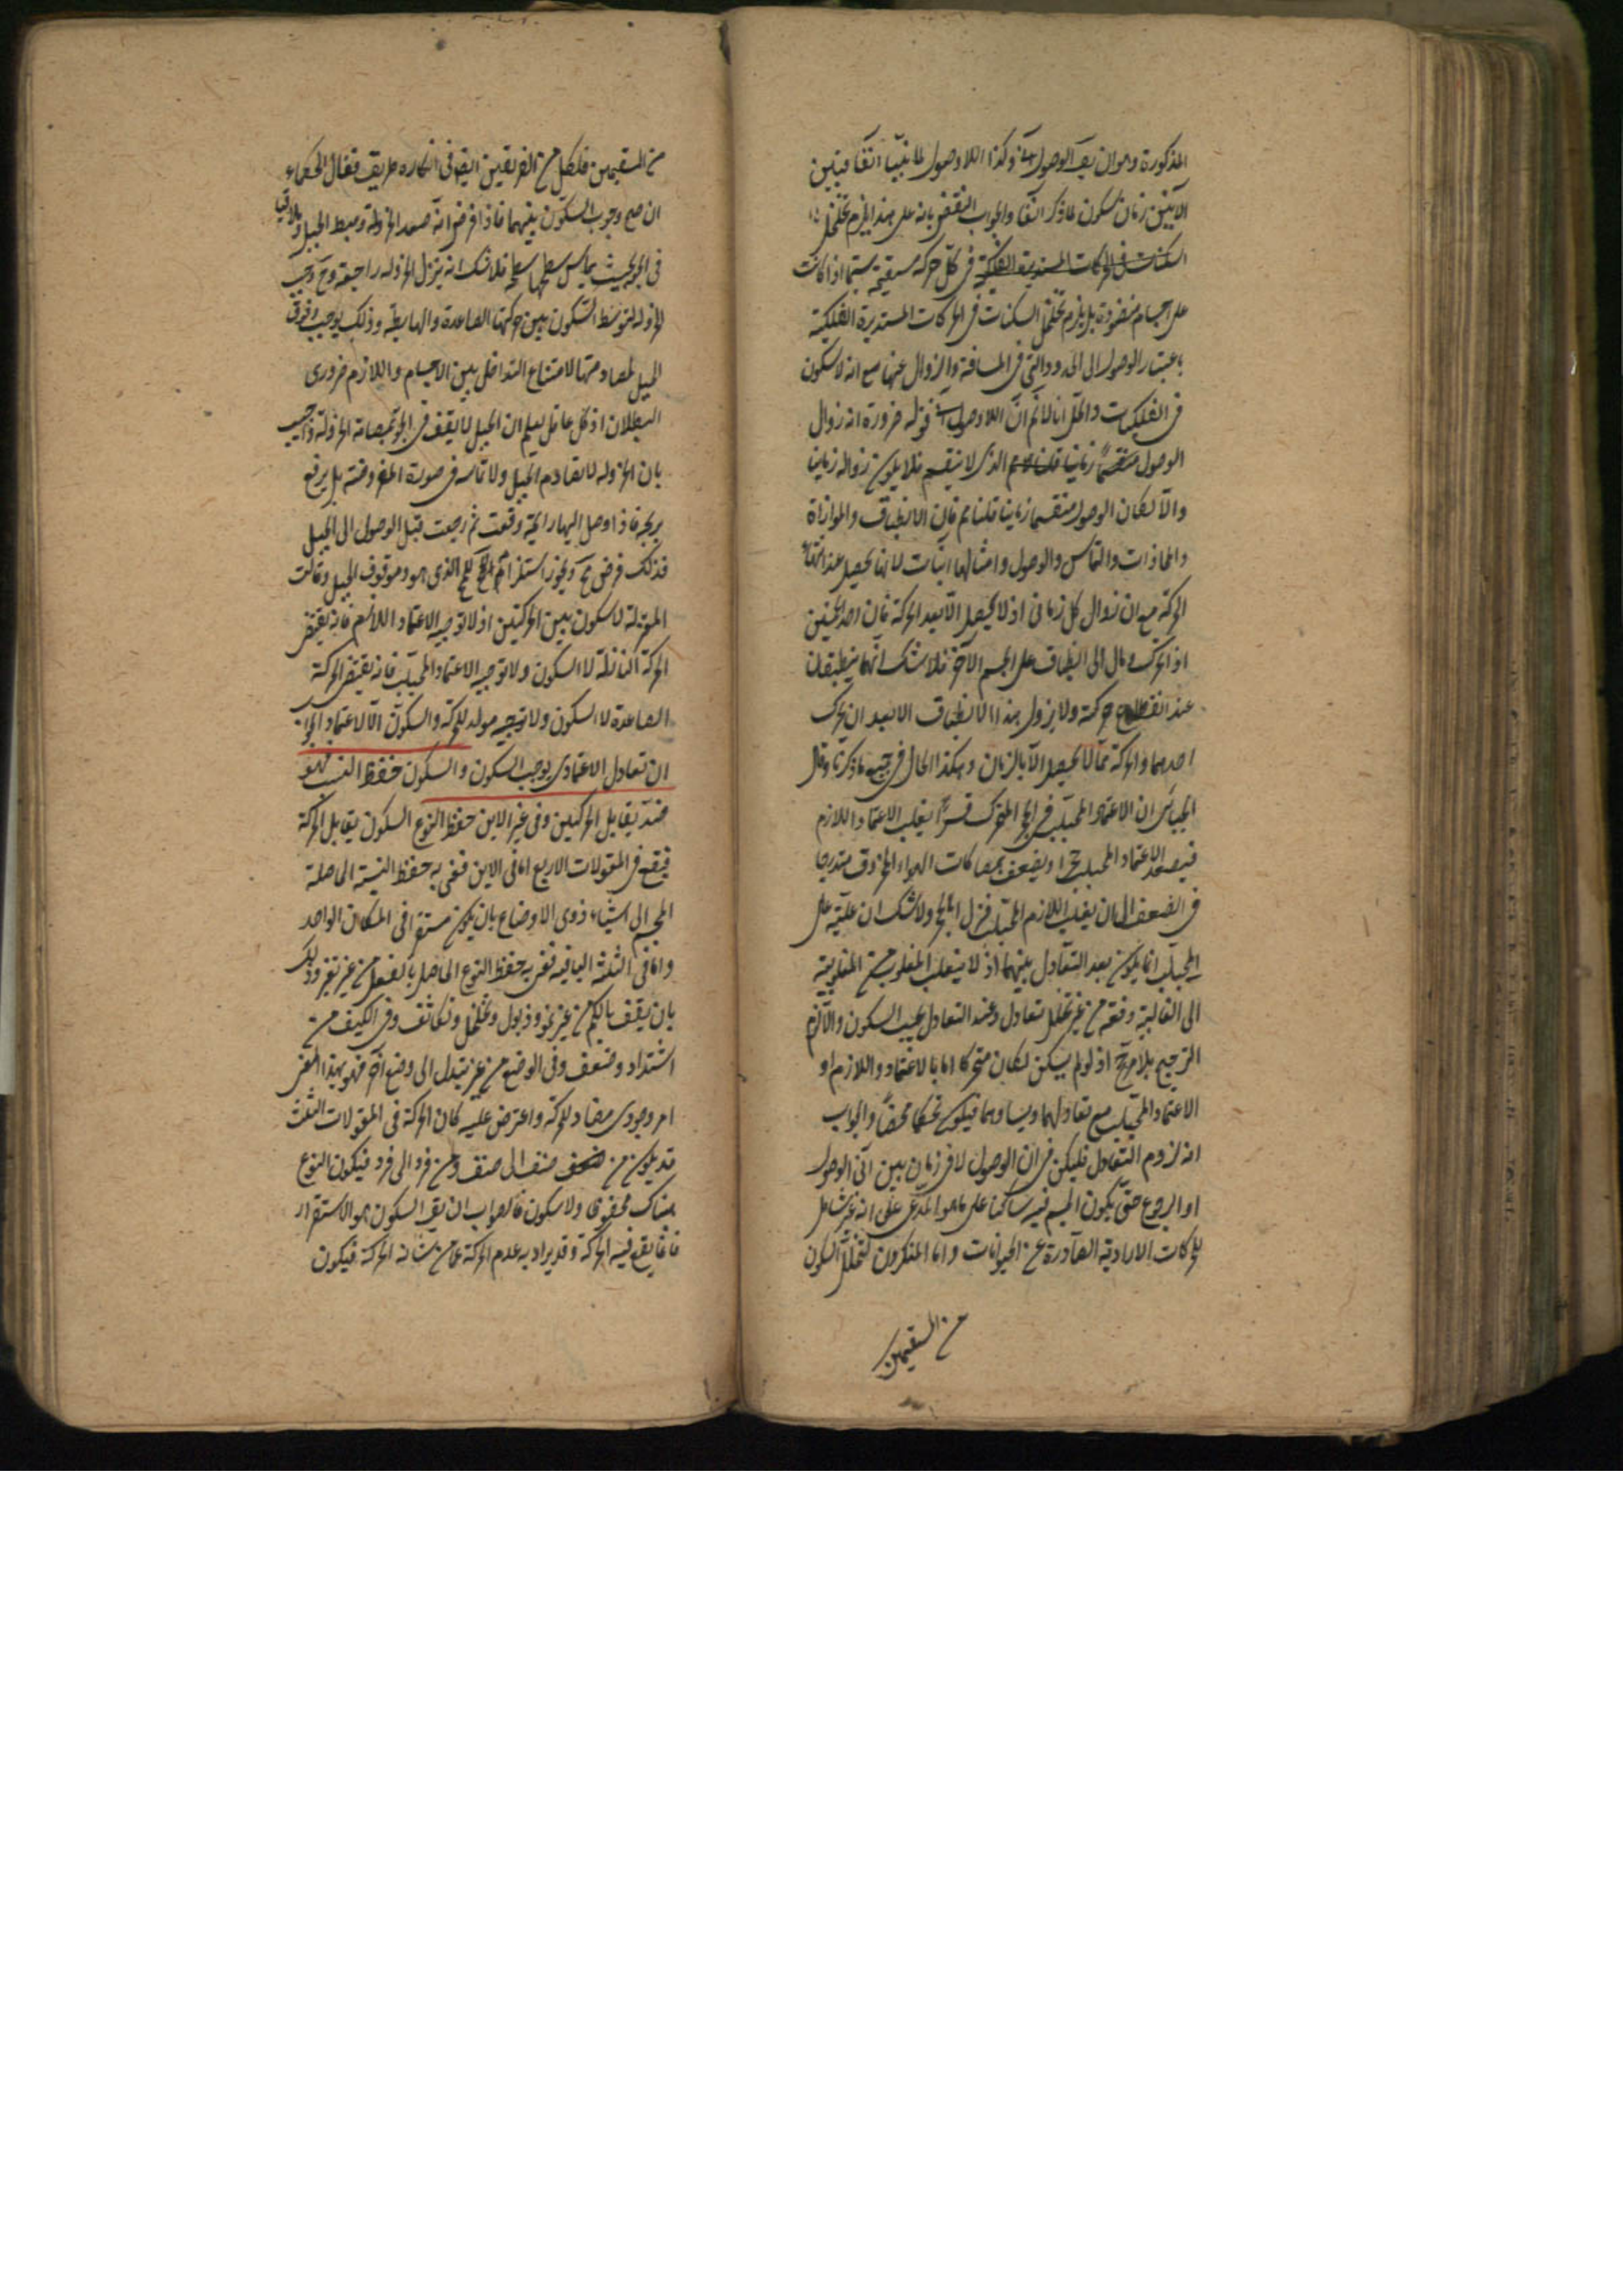 المذكورة وهو ان يق الوصول آنى وكذا اللاوصول فما بينا اتفا فبين
الآنين زمان سكون لما ذكر انفا والجواب النقض بانه على هذا يلزم تخلخل
السكنات فى الحركات المستديرة الفلكية فى كل حركة مستقيمة سيما اذا كانت
على اجسام منضودة بل يلزم تخلل السكنات فى الحركات المستديرة الفلكية
باعتبار الوصول الى الحدود التى فى المسافة والزوال عنها مع انه لا سكون
فى الفلكيات والحل انا لا نم ان اللاوصول آنى قوله ضرورة انه زوال
الوصول الذى لا ينقسم فلا يكون زواله زمانيا
والا لكان الوصول منقسما زمانيا قلنا مم فان الانطباق والموازاة
والمحاذات والتماس والوصول وامثالها آنيات لانها تحصل عند انتهاء
الحركة مع ان زوال كل زمانى اذ لا يحصل الا بعد الحركة فان احد الجسمين
اذا تحرك ومال الى انطباق على الجسم الآخر فلا شك انهما ينطبقان
عند انقطاع حركته ولا يزول هذا الانطباق الا بعد ان يتحرك
احدهما والحركة مما لا يحصل الا بالزمان وهكذا الحال فى جميع ما ذكرنا وقال
الجبائى ان الاعتماد المجتلب فى الحجر المتحرك قسرا يغلب الاعتماد اللازم
فيصعد الاعتماد المجتلب حجرا ويضعف بمصاكات الهواء المخروق متدرجا
فى الضعف الى ان يغلب اللازم المجتلب فنزل الحجر ولا شك ان غلبته على
المجتلب انما يكون بعد التعادل بينهما اذ لا ينقلب المغلوب من المغلوبية
الى الغالبية دفعة من غير تخلل تعادل وعند التعادل يجب السكون والا لزم
الترجيح بلا مرجح اذ لو لم يسكن لكان متحركا اما بالاعتماد واللازم او
الاعتماد المجتلب مع تعادلهما وتساويهما فيكون تحكما محضا والجواب
انه لزوم التعادل فليكن فى ان الوصول لا فى زمان بين آنى الوصول
او الرجوع حتى يكون الجسم فيه ساكنا على ما هو المدعى على انه غير شامل
للحركات الارادية الصادرة عن الحيوانات واما المنكرون لتخلل السكون
من المستقيمين
من المستقيمين فلكل من الفريقين ايضا فى انكاره طريق فقال الحكماء
ان صح وجوب السكون بينهما فاذا فرض انه صعد الخردلة وهبط الجبل وتلاقيا
فى الجو بحيث يماس سطحها سطحه فلا شك انه ينزل الخردله راجعة وح وجب
للخردله لتوسط السكون بين حركتها الصاعدة والهابطة وذلك يوجب وقوف
الجبل لمصادمتها لامتناع التداخل بين الاجسام واللازم ضرورى
البطلان اذ كل عاقل يعلم ان الجبل لا يقف فى الجو بمصادمة الخردلة واجيب
بان الخردله لا تصادم الجبل ولا تماسه فى صورة المفروضة بل يرجع
بريحه فاذا وصل اليها رايحته وقعت ثم رجعت قبل الوصول الى الجبل
فذلك فرض مح ويجوز استلزام المح للمح الذى هو وقوف الجبل وقالت
المعتزلة لا سكون بين الحركتين اذ لا توجبه الاعتماد اللازم فانه يقتضى
الحركة النازلة لا السكون ولا توجبه الاعتماد المجتلب فانه يقتضى الحركة
الصاعدة لا السكون ولا توجبه مولد للحركة والسكون الا الاعتماد والجواب
ان تعادل الاعتمادى يوجب السكون والسكون حفظ النسب فهو
ضد يقابل الحركتين وفى غير الاين حفظ النوع السكون يقابل الحركة
فيقع فى المقولات الاربع اما فى الاين فنعنى به حفظ النسبة الحاصلة
للجسم الى اشياء ذوى الاوضاع بان يكون مستقرا فى المكان الواحد
واما فى الثلثة الباقيه فنعنى به حفظ النوع الحاصل بالفعل من غير تغير وذلك
بان يقف بالكم من غير نمو وذبول وتخلخل وتكاثف وفى الكيف من
اشتداد وضعف وفى الوضع من غير تبدل الى وضع آخر فهو بهذا المعنى
امر وجودى مضاد للحركة واعترض عليه كان الحركة فى المقولات الثلث
قد يكون من صنف الى صنف ومن فرد الى فرد فيكون النوع
هناك محفوظا ولا سكون فالصواب ان يق السكون هو الاستقرار
فما يقع فيه الحركة وقد يراد به عدم الحركة عما من شانه الحركة فيكون